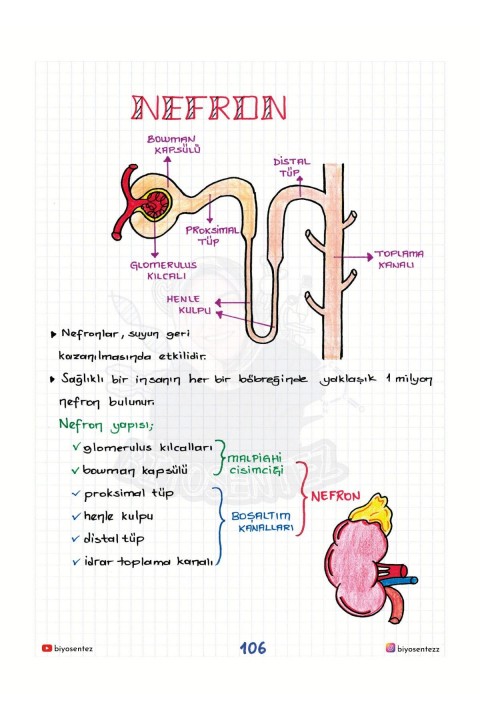 NEFRON
BOWMAN
KAPSÜLÜ
DİSTAL
TÜP
PROKSİMAL
TÜP
TOPLAMA
KANALI
GLOMERULUS
KILCALI
HENLE
KULPU
▸ Nefronlar, suyun geri
kazanılmasında etkilidir.
▸ Sağlıklı bir insanın her bir böbreğinde yaklaşık 1 milyon
nefron bulunur.
Nefron yapısı;
✓ glomerulus kılcalları
✓ bowman kapsülü
MALPIGHI
CİSİMCİĞİ
✓ proksimal tüp
NEFRON
✓ henle kulpu
BOŞALTIM
KANALLARI
✓ distal tüp
✓ idrar toplama kanalı
BİYOSENTEZ
biyosentez
106
biyosentezz